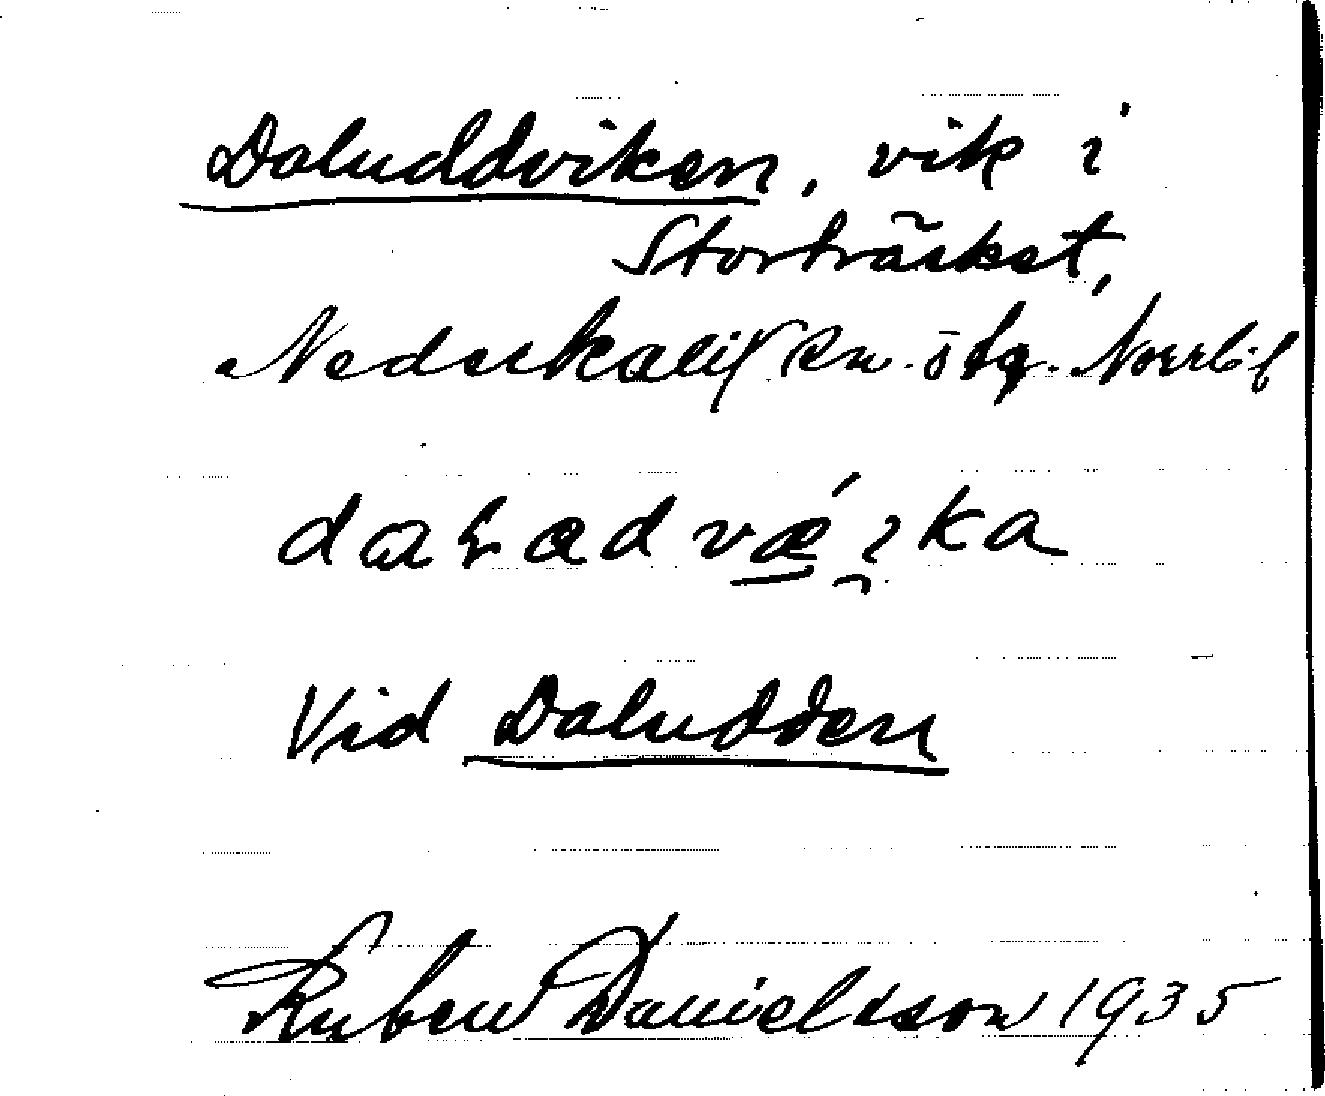 Daluddviken, vik i
Storträsket,
Nederkalix sn. östg. Norrb.
Vid Daludden
Ruben Danielsson 1935